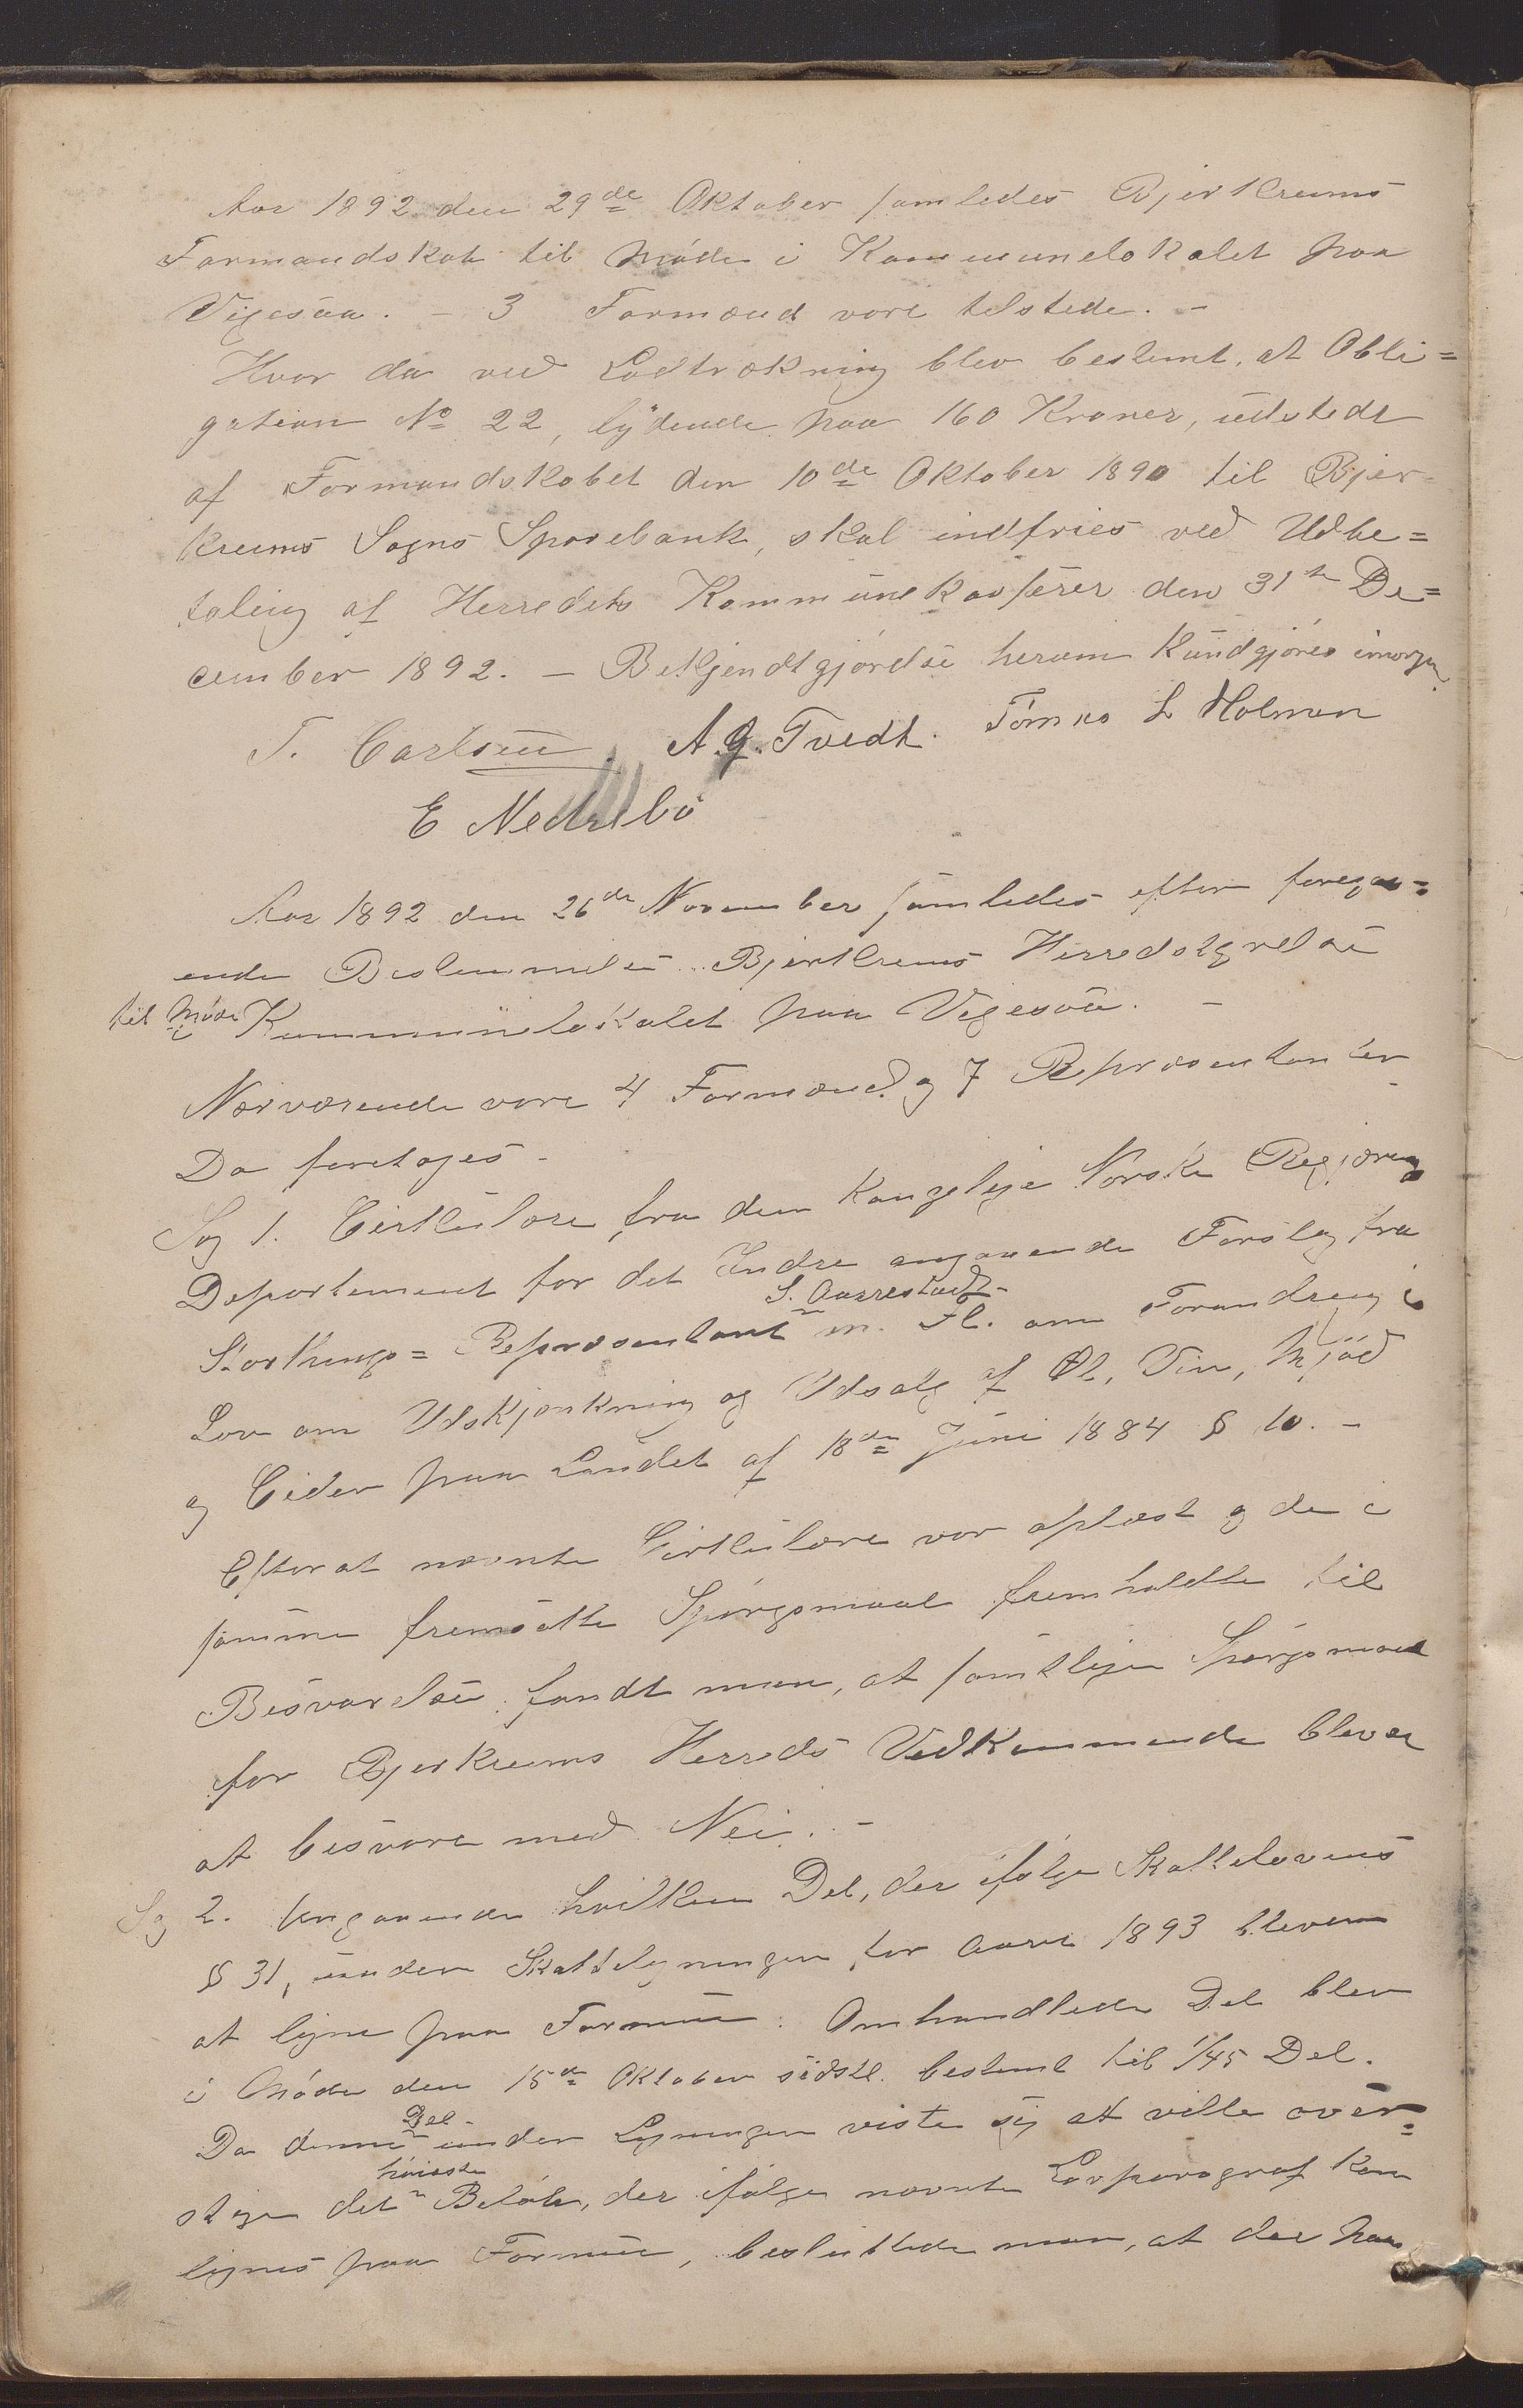 Aar 1892 den 29de Oktober samledes Bjerkreims
Formandskab til Møde i Kommunelokalet paa
Vigesaa. – 3 Formænd vare tilstede. –
Hvor da ved Lodtrækning blev bestemt, at Obli=
gation No 22, lydende paa 160 Kroner, udstedt
af Formandskabet den 10de Oktober 1890 til Bjer=
kreims Sogns Sparebank, skal indfries ved Udbe=
taling af Herredets Kommunekasserer den 31te De=
cember 1892. – Bekjendtgjørelse herom kundgjøres imorgen.
T. Carlsen. A. G. Tvedt. Tønnes L Holmen
E Nedrebø
Aar 1892 den 26de November samledes efter foregaa=
ende Bestemmelse Bjerkreims Herredstyrelse
til Møde i Kommunelokalet paa Vigesaa. –
Nærværende vare 4 Formænd og 7 Repræsentanter
Da foretoges –
Sag 1. Cirkulære fra den Kongelige Norske Regjerings
Departement for det Indre angaaende Forslag fra
Storthings= Repræsentant S. Aarrestad m. Fl. om Forandring i
Lov om Udskjænkning og Udsalg af Øl, Vin, Mjød
og Cider paa Landet af 18de Juni 1884 § 10. –
Efterat nævnte Cirkulære var oplæst og de i
samme fremsatte Spørgsmaal fremholdte til
Besvarelse fandt man, at samtlige Spørgsmaal
for Bjerkreims Herreds Vedkommende blever
at besvare med Nei. –
Sag 2. Angaaende hvilken Del, der ifølge Skattelovens
§ 31, under Skatteligningen for Aaret 1893 bleven
at ligne paa Formue. Omhandlede Del blev
i Møde den 15de Oktober sidstl. bestemt til 1/45 Del.
Da denne Del under Ligningen viste sig at ville over=
stige det høieste Beløb, der ifølge nævnte Lovparagraf kan
lignes paa Formue, besluttede man, at der paa